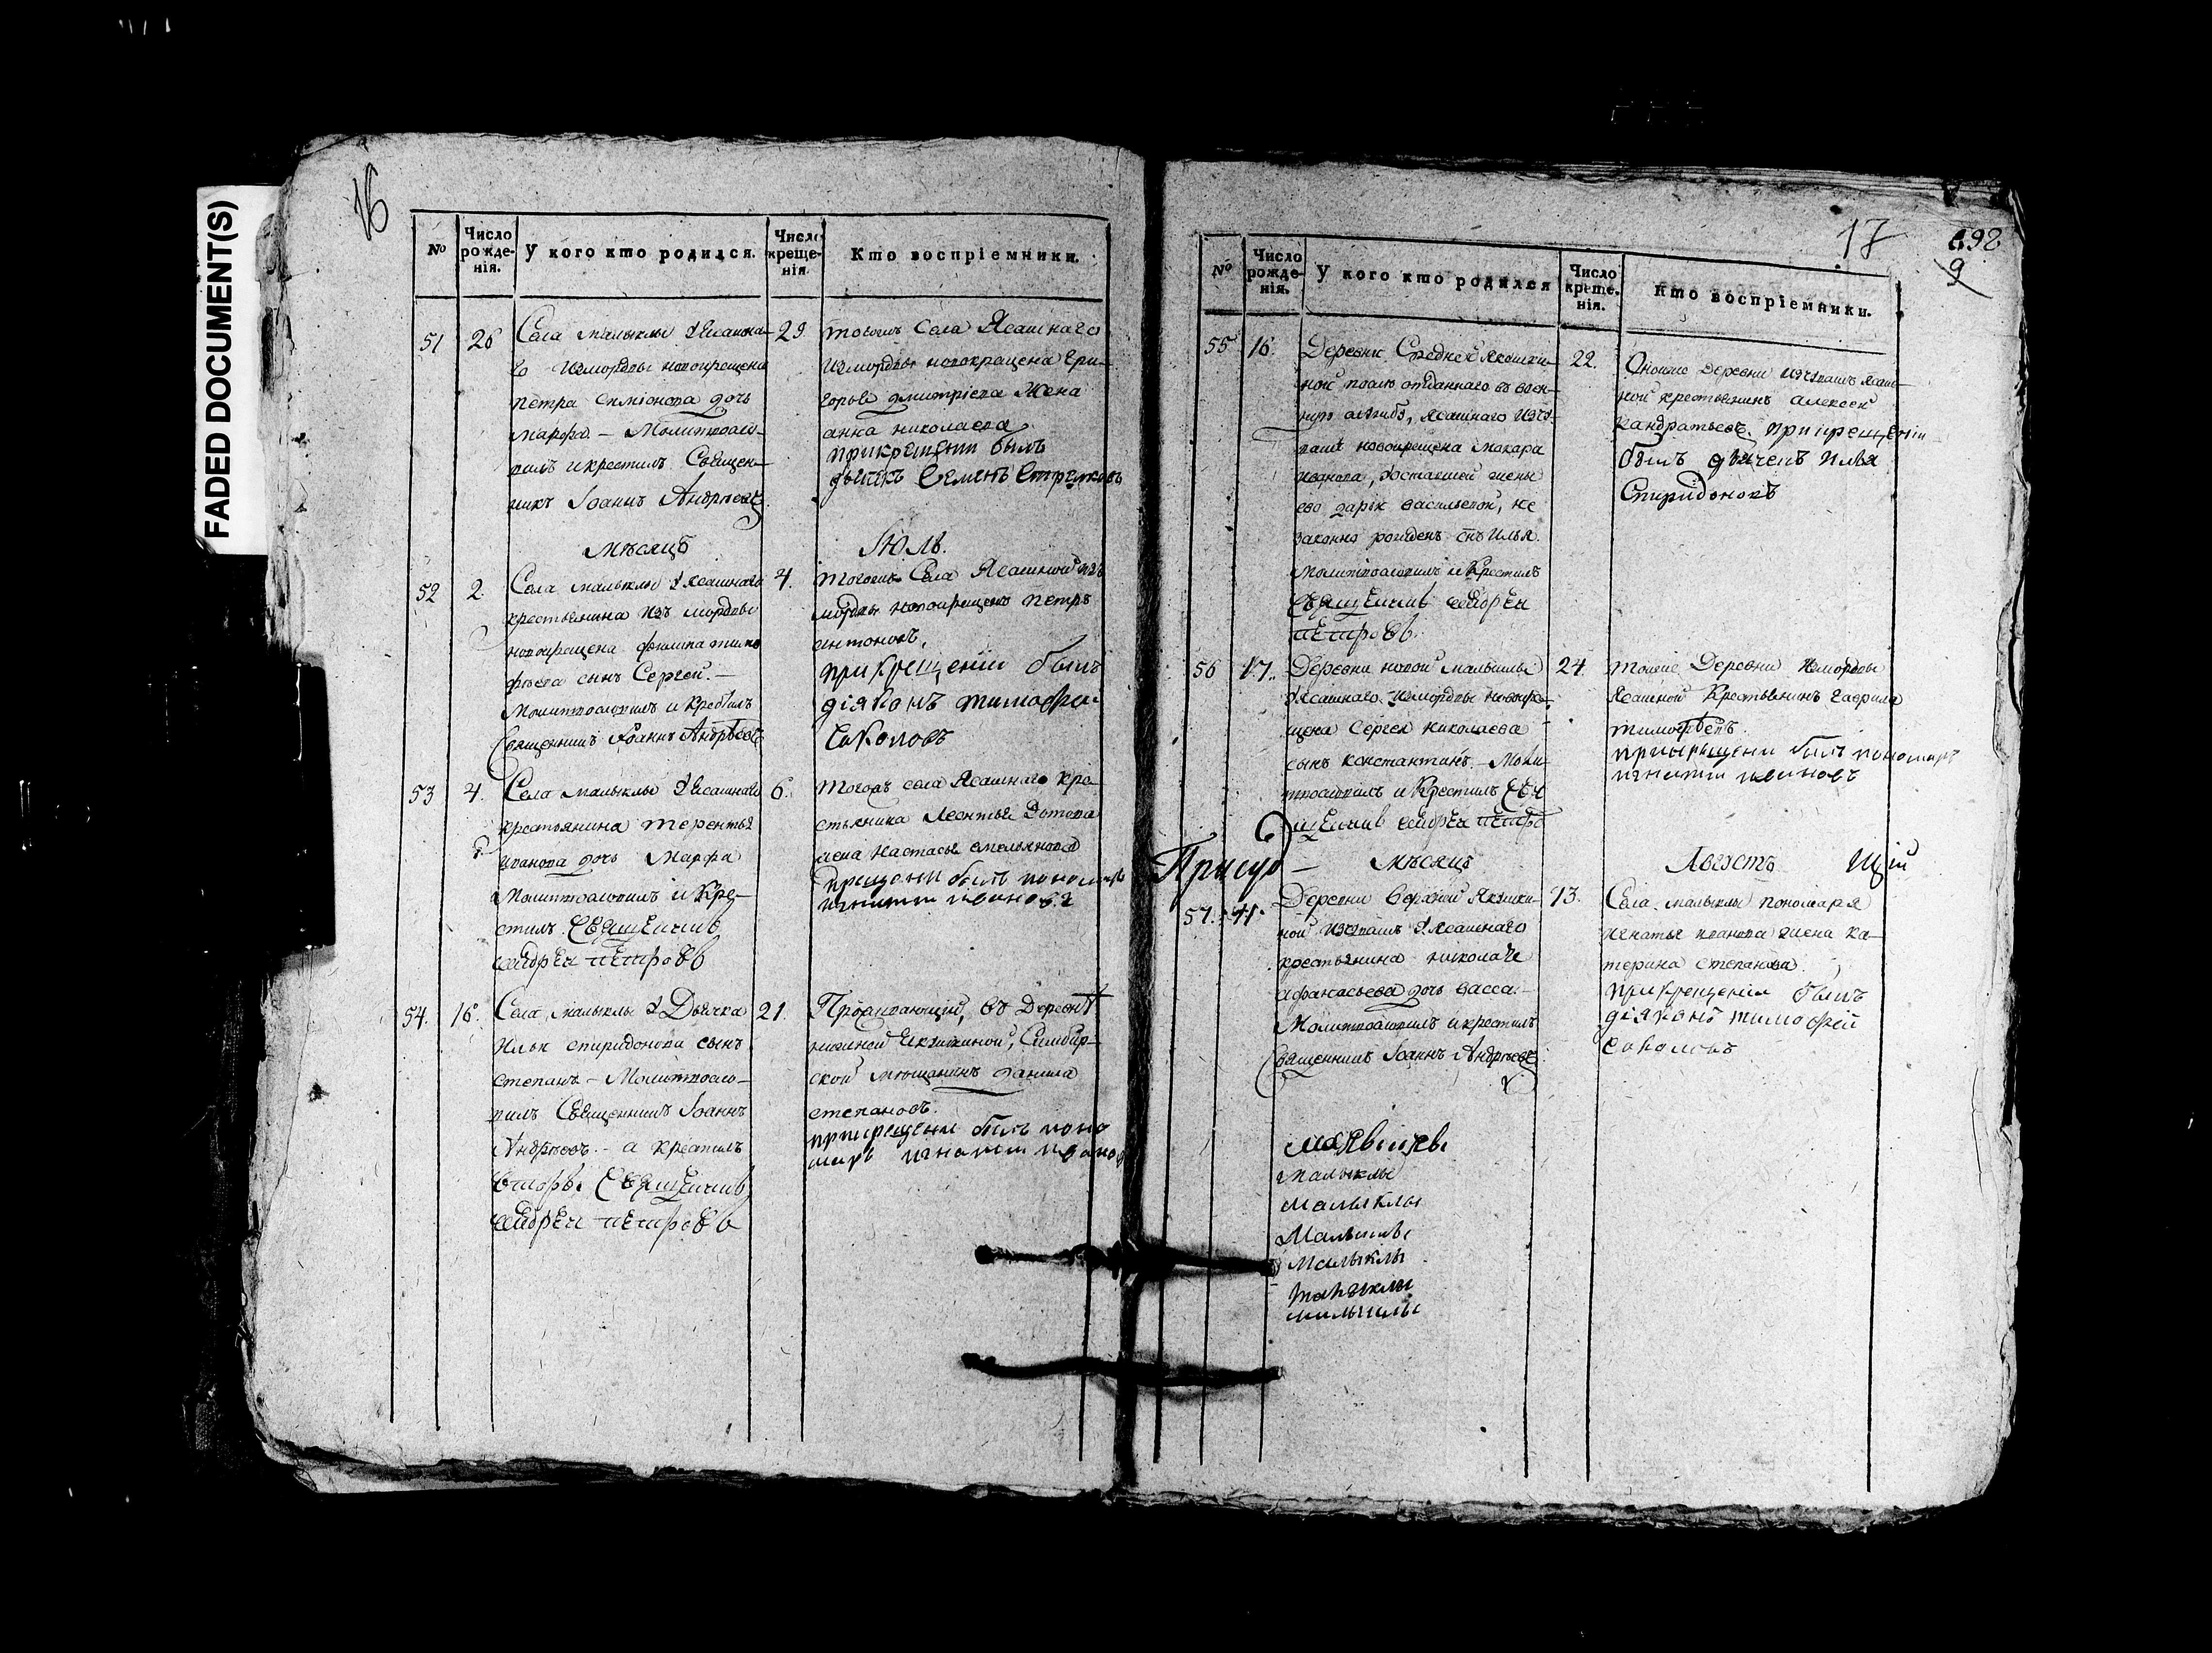 FADED DOCUMENT(S)
16
№
Число рожде-нія.
У кого кто родился.
Число креще-нія.
Кто воспріемники.
51
26
Села малыклы у Ясашна-
го измордвы новокрещена
петра симіонова дочь
марфа – Молитвосло-
вилъ икрестилъ Священ-
никъ Іоаннъ Андрѣевъ
29.
тогожъ Села Ясашнаго
измордвы новокрещена Гри-
горья дмитріева Жена
анна николаева
прикрещении былъ
дьячекъ Семенъ Стрелковъ
мѣсяцъ
Іюль.
52
2.
Села малыклы у Ясашнаго
крестьянина изъ мордвы
новокрещена филипа тимо
фѣева сынъ Сергей. –
Молитвословилъ и Крестилъ
Священникъ Іоаннъ Андрѣевъ
4.
тогожъ Села Ясашной изъ
мордвы новокрещенъ петръ
антоновъ.
при крещении былъ
діяконъ тимофеи
Соколовъ
53
4.
Села малыклы у Ясашнаго
крестьянина терентья
иванова дочь Марфа
молитвословилъ и Кре-
стилъ Священникъ
андреи петровъ
6.
тогожъ села Ясашнаго кре
стьянина Леонтья
жена настасья емельянова
крещени былъ пономарь
игнатии ивановъ
54.
16.
Села малыклы у Дьячка
Ильи спиридонова сынъ
степанъ – Молитвосло-
вилъ Священникъ Іоаннъ
Андрѣевъ. – а крестилъ
вторы Священникъ
андреи петровъ
21.
Проживающій, въ Деревнѣ
нижней Якушкиной, Симбир-
ской мѣщанинъ данила
степановъ.
прикрещени былъ поно
марь игнатии иванов
17
692
9
№
Число рожде-нія.
У кого кто родился
Число креще-нія.
Кто воспріемники.
55
16.
Деревни Средней Якошки-
ной послѣ отданнаго въ воен-
ную службу, Ясашнаго изчу-
вашъ новокрещена макара
иванова, уоставшей жены
его дарьи васильевой, не
законно рожденъ снъ Илья.
молитвословилъ и Крестилъ
Священникъ андреи
петровъ.
22.
Оноиже деревни изчувашъ Ясаш-
ной крестьянинъ алексей
кандратьевъ. при крещении
былъ дьячекъ илья
Спиридоновъ
56
17.
Деревни новой малыклы
у Ясашнаго измордвы новокре-
щена Сергея николаева
сынъ константинъ. – Моли-
твословилъ и Крестилъ Свя
щенникъ андреи петро
24.
тоиже Деревни измордвы
Ясашной Крестьянинъ гаврила
тимофѣевъ.
прикрещени былъ пономарь
игнатии ивановъ
Присуд –
мѣсяцъ
Августъ
щій
57.
11.
Деревни верхней Якушки-
ной изчувашъ у Ясашнаго
крестьянина николая
афанасьева дочь васса. –
Молитвословилъ икрестилъ
Священникъ Іоаннъ Андрѣевъ.
13.
Села малыклы пономаря
игнатья иванова жена ка-
терина степанова.
прикрещении былъ
діяконъ тимофей
соколовъ
малыклы
малыклы
Малыклы
Малыклы
малыклы
малыклы